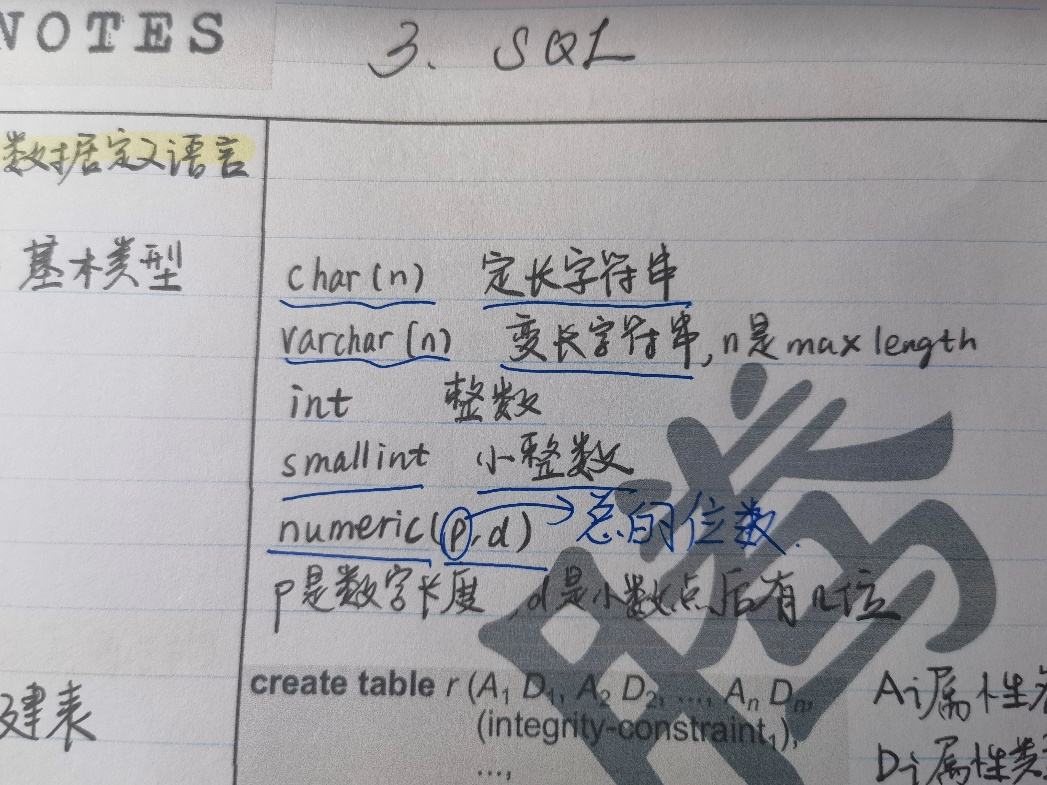 NOTES
3. SQL
数据定义语言
基本类型
char(n) 定长字符串
varchar(n) 变长字符串, n是max length
int 整数
smallint 小整数
numeric(p,d) 总的位数.
p是数字长度 d是小数点后有n位
建表
create table r (A1 D1, A2 D2, ..., An Dn,
(integrity-constraint1),
...,
Ai属性名
Di属性类型